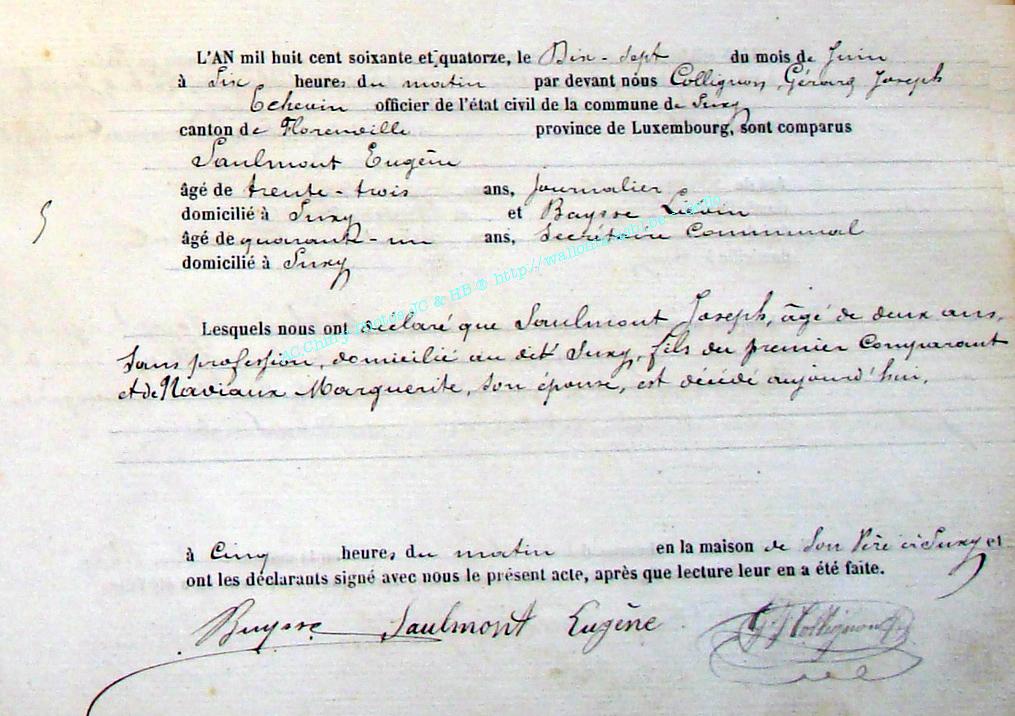 L'AN mil huit cent soixante et quatorze, le Dix-Sept du mois de Juin
à Six heures du matin par devant nous Collignon, Gérard Joseph
Echevin officier de l'état civil de la commune de Suxy
canton de Florenville province de Luxembourg, sont comparus
Saulmont Eugène
âgé de trente-trois ans, Journalier
domicilié à Suxy et Buysse Liévin
âgé de quarante-un ans, Secrétaire Communal
domicilié à Suxy
5
Lesquels nous ont déclaré que Saulmont Joseph, âgé de deux ans,
sans profession, domicilié au dit Suxy, fils du premier Comparant
et de Naviaux Marguerite, son épouse, est décédé aujourd'hui,
à Cinq heures du matin en la maison de son Père à Suxy et
ont les déclarants signé avec nous le présent acte, après que lecture leur en a été faite.
Buysse Saulmont Eugène G. J. Collignon
AC Chiny Photos JC & HB ® http://